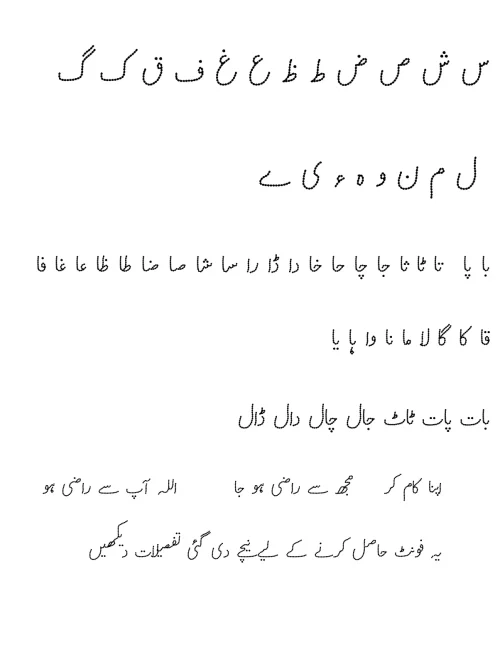 س ش ص ض ط ظ ع غ ف ق ک گ
ل م ن و ہ ء ی ے
با پا تا ٹا ثا جا چا حا خا دا ڈا را سا شا صا ضا طا ظا عا غا فا
قا کا گا لا ما نا وا ہا یا
بات پات ٹاٹ جال چال دال ڈال
اپنا کام کر مجھ سے راضی ہو جا اللہ آپ سے راضی ہو
یہ فونٹ حاصل کرنے کے لیے نیچے دی گئی تفصیلات دیکھیں